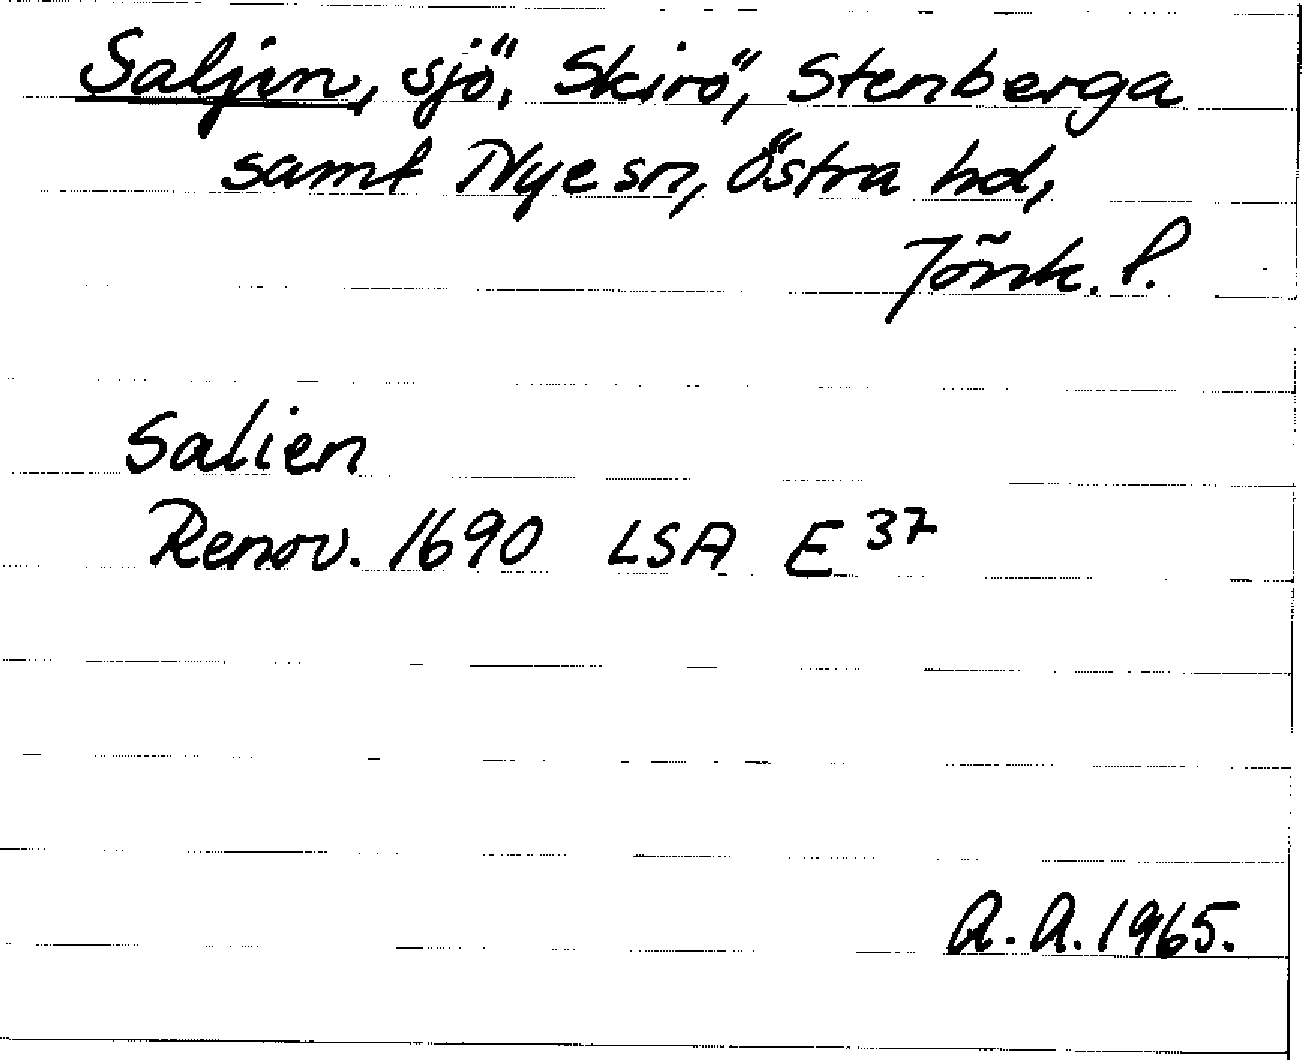 Saljen, sjö, Skirö, Stenberga
samt Nye sn, Östra hd,
Jönk. l.
Salien
Renov. 1690 LSA E 37
A. A. 1965.